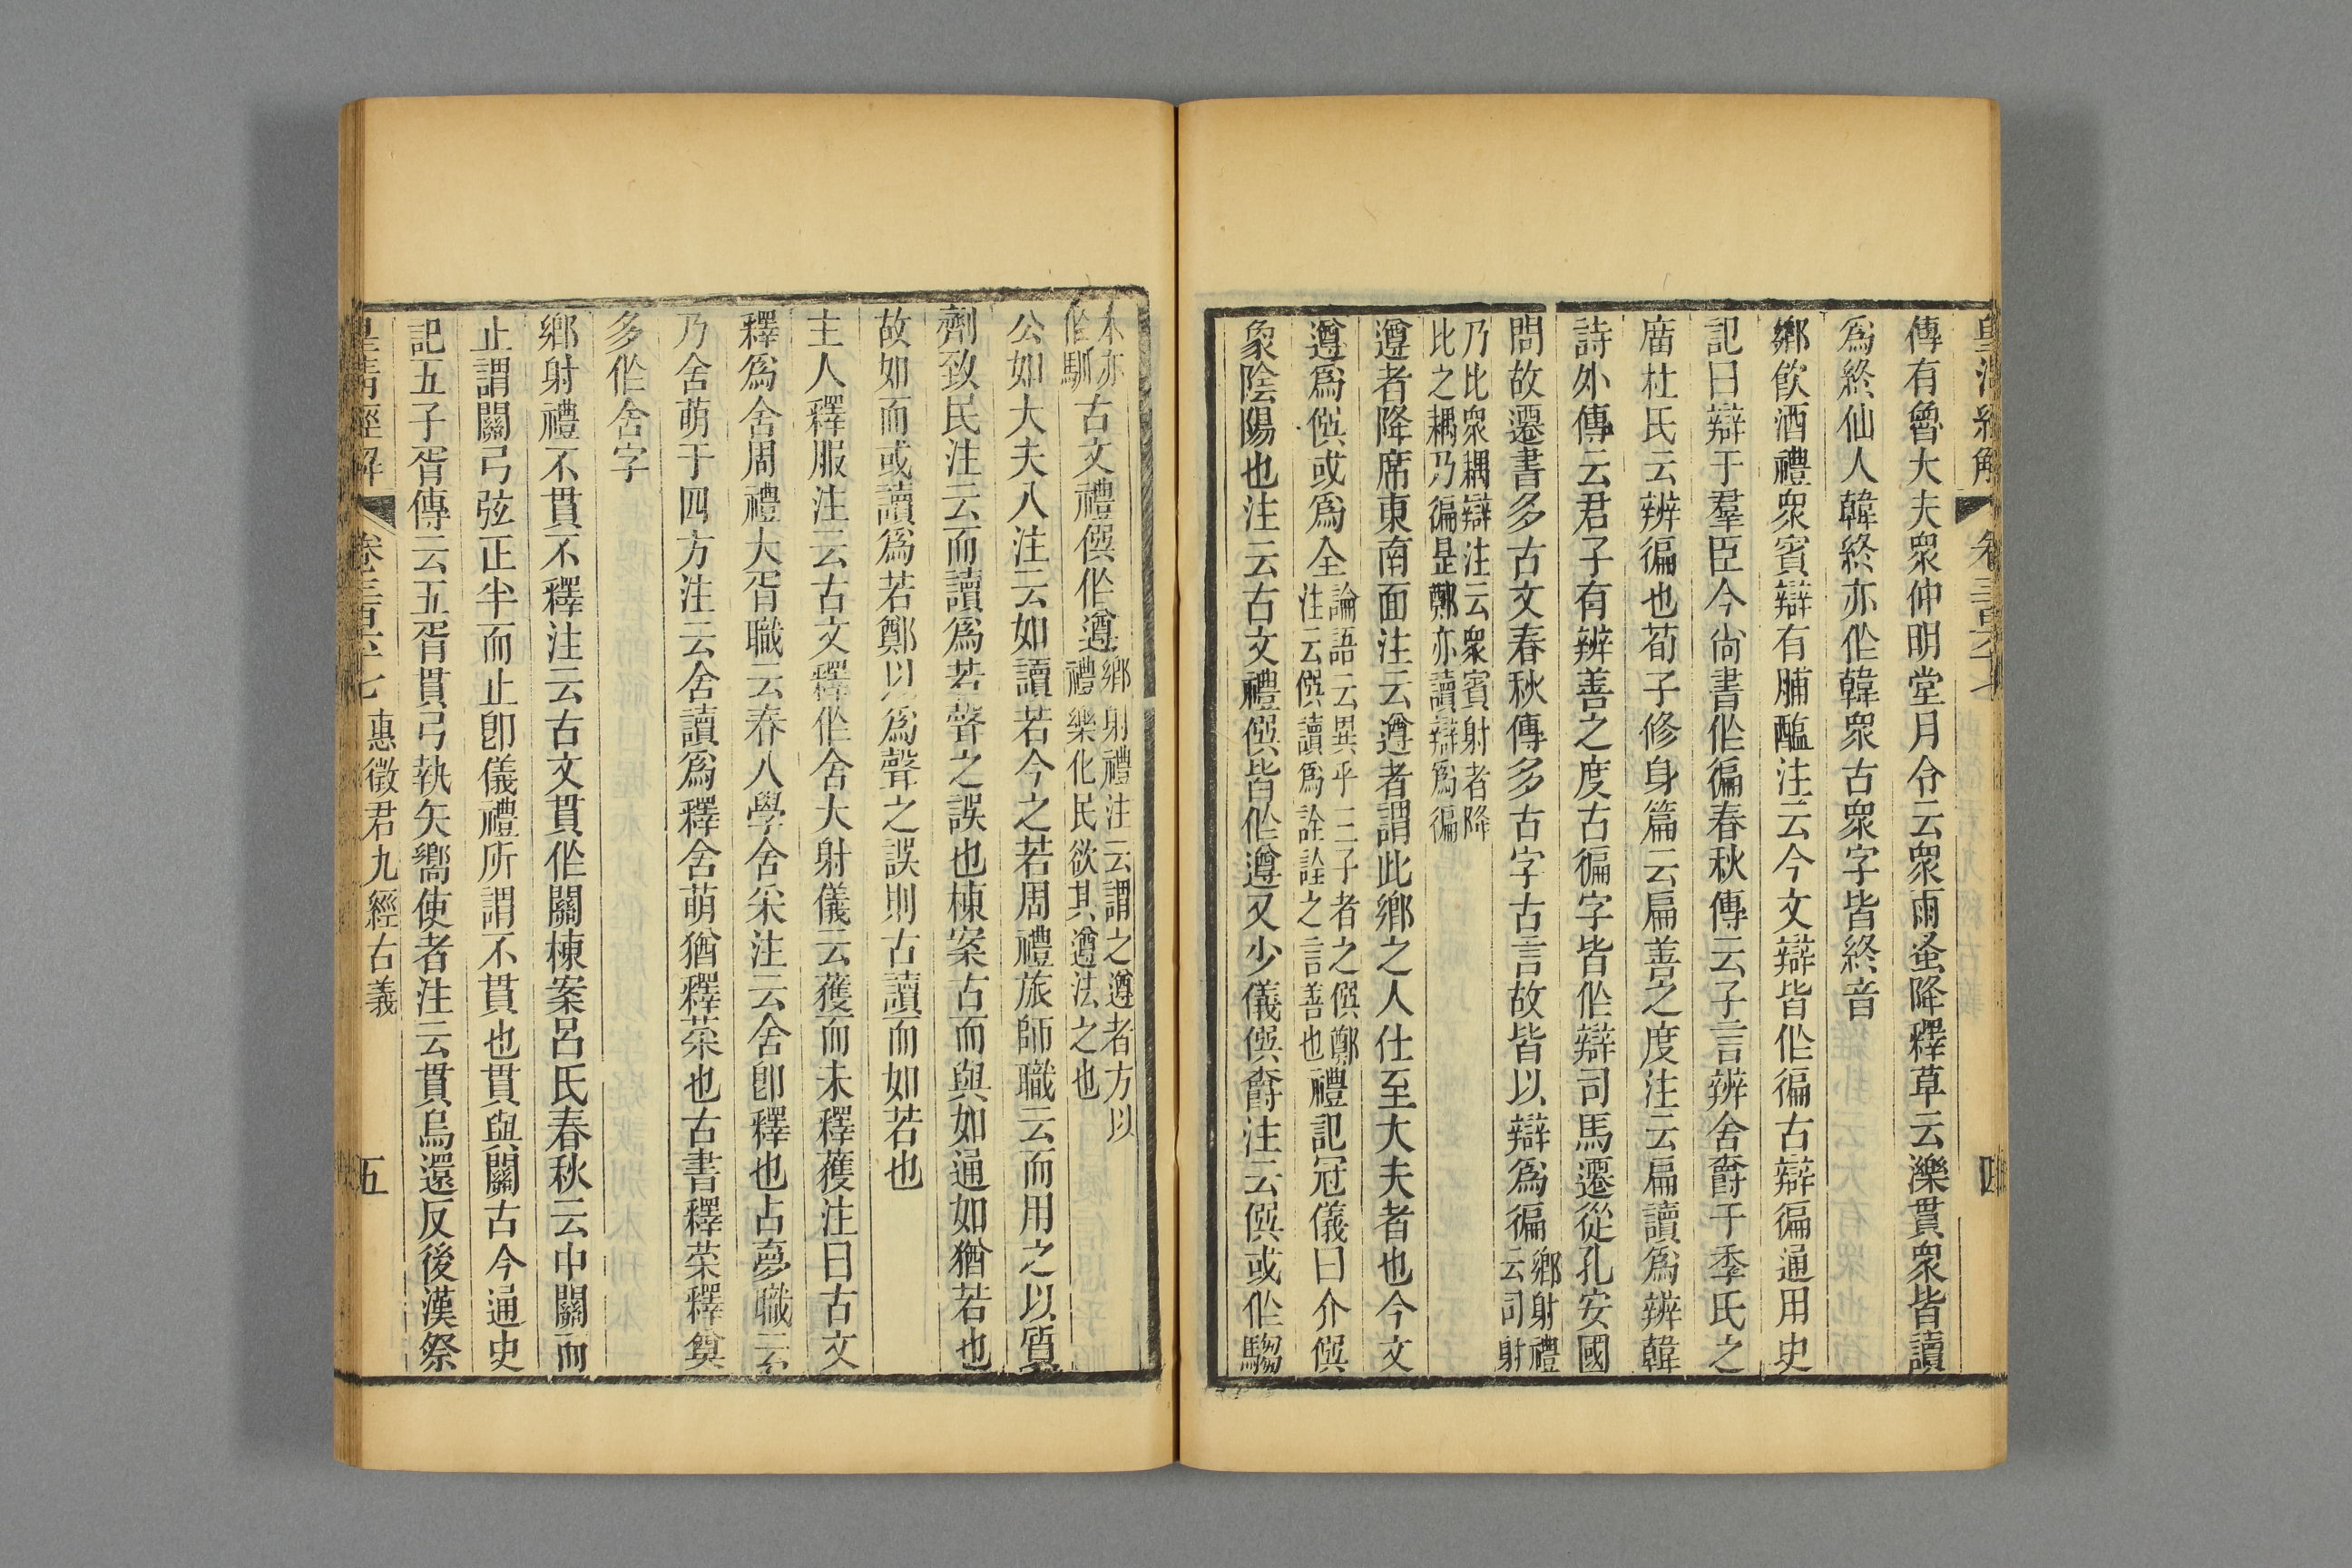 皇清經解 卷三百六十七 四
傳有魯大夫衆仲明堂月令云衆雨蚤降釋草云濼貫衆皆讀
爲終仙人韓終亦作韓衆古衆字皆終音
鄉飮酒禮衆賓辯有脯醢注云今文辯皆作徧古辯徧通用史
記曰辯于羣臣今尙書作徧春秋傳云子言辨舍爵于季氏之
庿杜氏云辨徧也荀子修身篇云扁善之度注云扁讀爲辨韓
詩外傳云君子有辨善之度古徧字皆作辯司馬遷從孔安國
問故遷書多古文春秋傳多古字古言故皆以辯爲徧鄉射禮云司射
乃比衆耦辯注云衆賓射者降比之耦乃徧是鄭亦讀辯爲徧
遵者降席東南面注云遵者謂此鄉之人仕至大夫者也今文
遵爲僎或爲全論語云異乎三子者之僎鄭注云僎讀爲詮詮之言善也禮記冠儀曰介僎
象陰陽也注云古文禮僎皆作遵又少儀僎爵注云僎或作騶
本亦作馴古文禮僎作遵鄉射禮注云謂之遵者方以禮樂化民欲其遵法之也
公如大夫入注云如讀若今之若周禮旅師職云而用之以質
劑致民注云而讀爲若聲之誤也棟案古而與如通如猶若也
故如而或讀爲若鄭以爲聲之誤則古讀而如若也
主人釋服注云古文釋作舍大射儀云獲而未釋獲注曰古文
釋爲舍周禮大胥職云春入學舍采注云舍卽釋也占夢職云
乃舍萌于四方注云舍讀爲釋舍萌猶釋菜也古書釋菜釋奠
多作舍字
鄉射禮不貫不釋注云古文貫作關棟案呂氏春秋云中關而
止謂關弓弦正半而止卽儀禮所謂不貫也貫與關古今通史
記五子胥傳云五胥貫弓執矢嚮使者注云貫烏還反後漢祭
皇淸經解 卷三百六十七 惠徵君九經古義 五